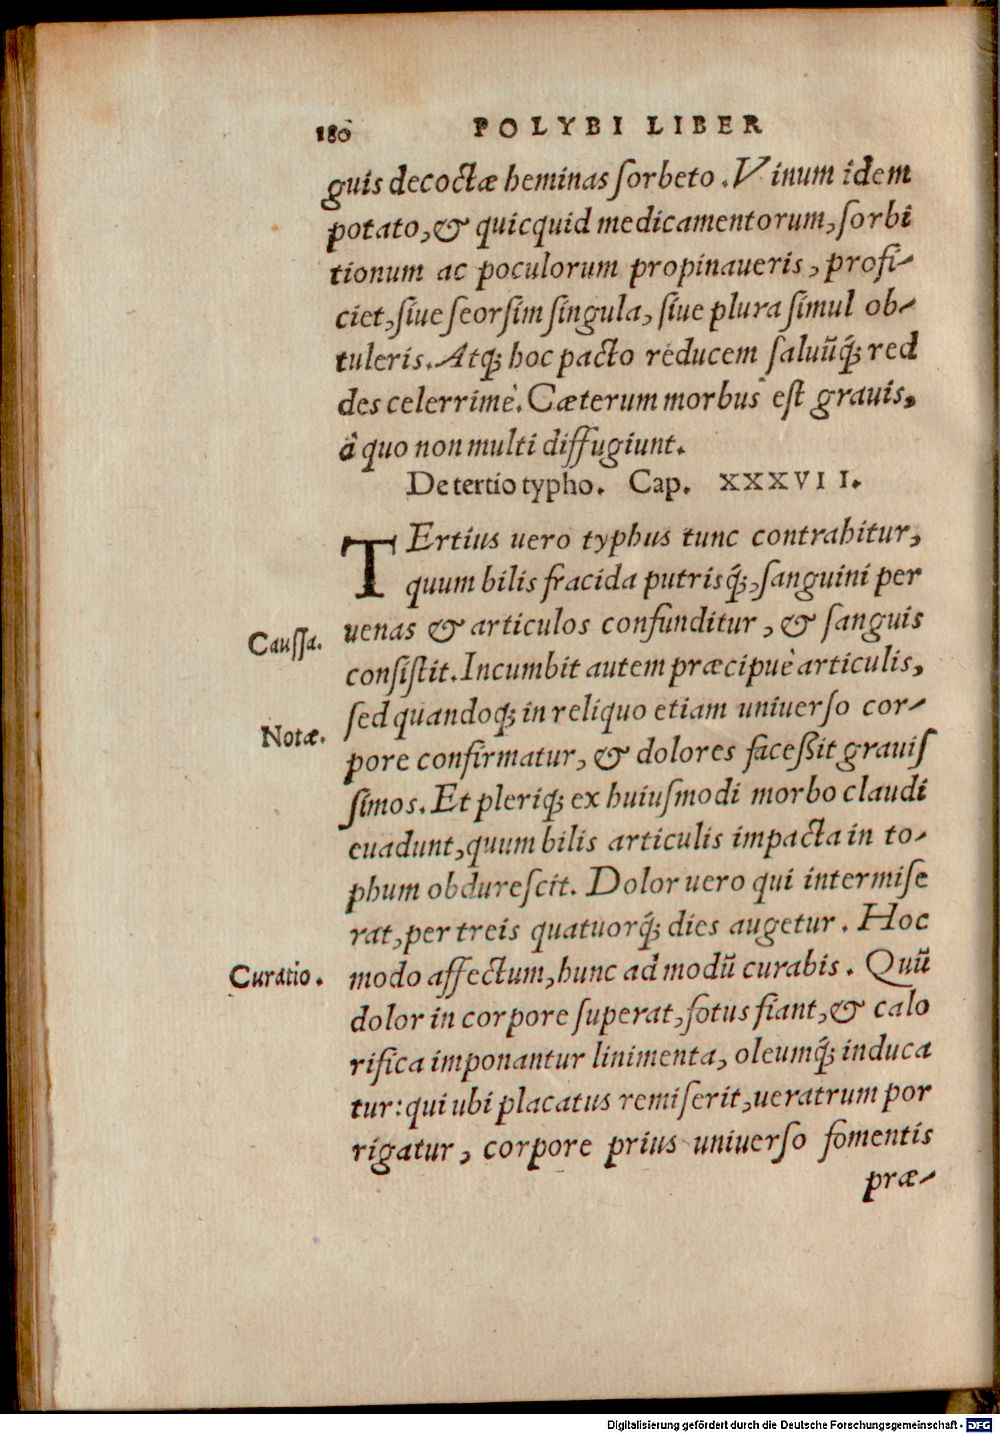 180 POLYBI LIBER
guis decoctæ heminas ſorbeto. Vinum idem
potato, & quicquid medicamentorum, ſorbi
tionum ac poculorum propinaueris, profi-
ciet, ſiue ſeorſim ſingula, ſiue plura ſimul ob-
tuleris. Atq; hoc pacto reducem ſaluũq́; red
des celerrimè. Cæterum morbus est grauis,
à quo non multi diffugiunt.
De tertio typho. Cap. XXXVII I.
TErtius uero typhus tunc contrahitur,
quum bilis fracida putrisq́;, ſanguini per
Cauſſa.
uenas & articulos confunditur, & ſanguis
conſiſtit. Incumbit autem præcipuè articulis,
Notæ.
ſed quandoq; in reliquo etiam uniuerſo cor-
pore confirmatur, & dolores faceßit grauiſ
ſimos. Et pleriq; ex huiuſmodi morbo claudi
euadunt, quum bilis articulis impacta in to-
phum obdureſcit. Dolor uero qui intermiſe
rat, per treis quatuorq́; dies augetur. Hoc
Curatio.
modo affectum, hunc ad modũ curabis. Quũ
dolor in corpore ſuperat, fotus fiant, & calo
rifica imponantur linimenta, oleumq́; induca
tur: qui ubi placatus remiſerit, ueratrum por
rigatur, corpore prius uniuerſo fomentis
præ-
Digitalisierung gefördert durch die Deutsche Forschungsgemeinschaft - DFG